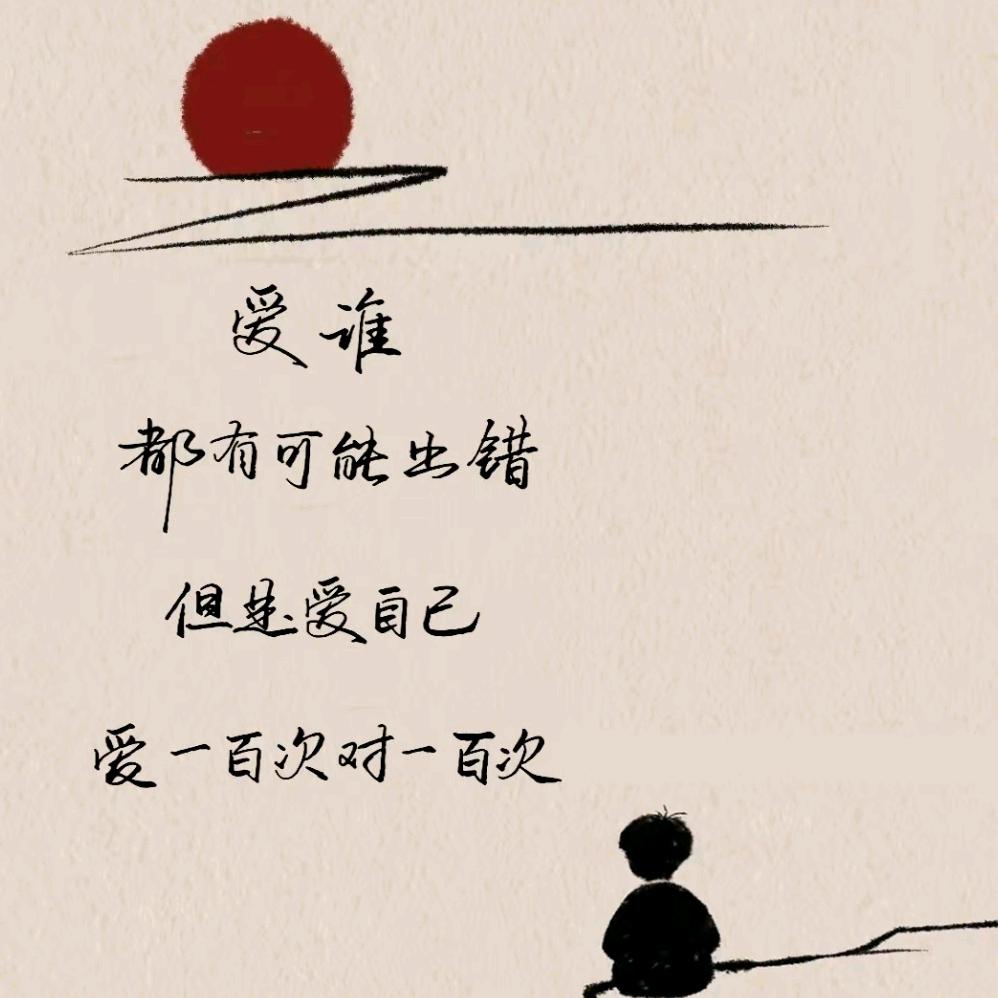 爱谁
都有可能出错
但是爱自己
爱一百次对一百次